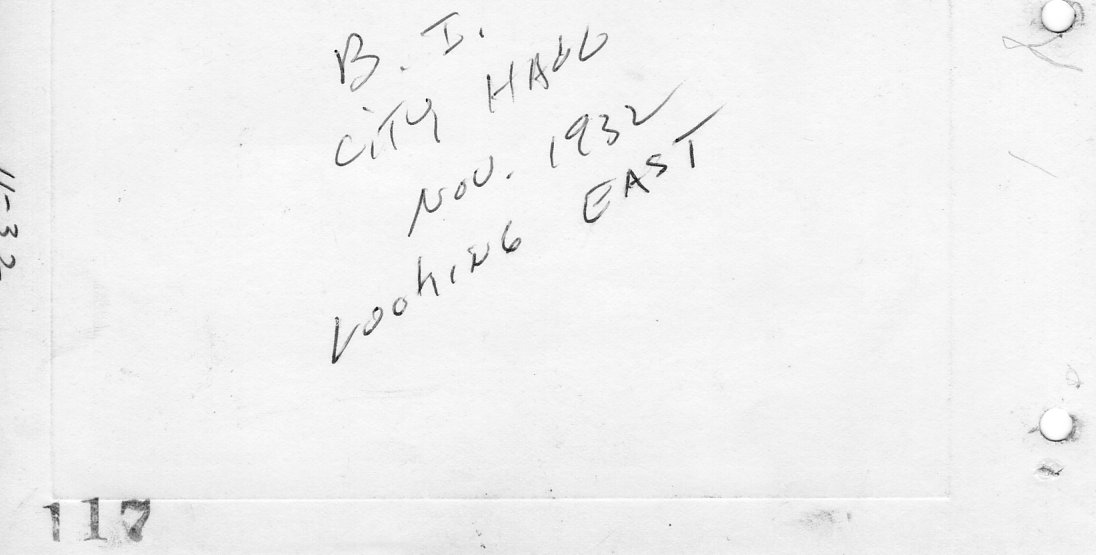 B. I.
CITY HALL
NOV. 1932
LOOKING EAST
11-32
117